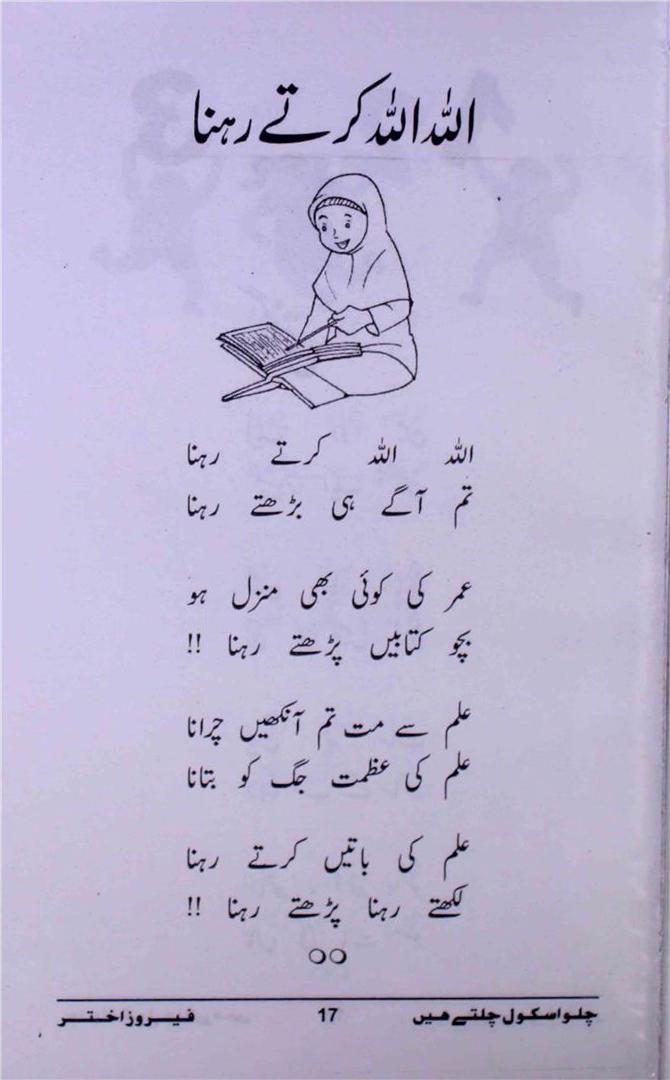 اللہ اللہ کرتے رہنا
اللہ اللہ کرتے رہنا
تم آگے ہی بڑھتے رہنا
عمر کی کوئی بھی منزل ہو
بچو کتابیں پڑھتے رہنا !!
علم سے مت تم آنکھیں چرانا
علم کی عظمت جگ کو بتانا
علم کی باتیں کرتے رہنا
لکھتے رہنا پڑھتے رہنا !!
چلو اسکول چلتے ھیں 17 فیروز اختر